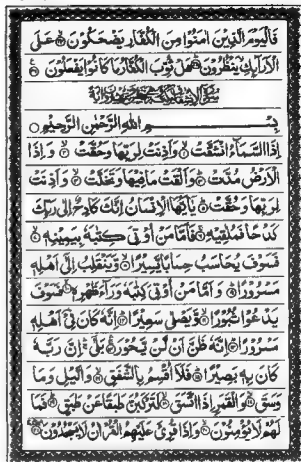 فَالْيَوْمَ الَّذِينَ اٰمَنُوْا مِنَ الْكُفَّارِ يَضْحَكُوْنَ ۙ عَلَى
الْاَرَآئِكِ يَنْظُرُوْنَ ۙ هَلْ ثُوِّبَ الْكُفَّارُ مَا كَانُوْا يَفْعَلُوْنَ
بِسْمِ اللهِ الرَّحْمٰنِ الرَّحِيْمِ
اِذَا السَّمَآءُ انْشَقَّتْ ۙ وَاَذِنَتْ لِرَبِّهَا وَحُقَّتْ ۙ وَاِذَا
الْاَرْضُ مُدَّتْ ۙ وَاَلْقَتْ مَا فِيْهَا وَتَخَلَّتْ ۙ وَاَذِنَتْ
لِرَبِّهَا وَحُقَّتْ ۙ يٰٓاَيُّهَا الْاِنْسَانُ اِنَّكَ كَادِحٌ اِلٰى رَبِّكَ
كَدْحًا فَمُلٰقِيْهِ ۚ فَاَمَّا مَنْ اُوْتِيَ كِتٰبَهٗ بِيَمِيْنِهٖ ۙ
فَسَوْفَ يُحَاسَبُ حِسَابًا يَّسِيْرًا ۙ وَّيَنْقَلِبُ اِلٰٓى اَهْلِهٖ
مَسْرُوْرًا ۙ وَاَمَّا مَنْ اُوْتِيَ كِتٰبَهٗ وَرَآءَ ظَهْرِهٖ ۙ فَسَوْفَ
يَدْعُوْا ثُبُوْرًا ۙ وَّيَصْلٰى سَعِيْرًا ۙ اِنَّهٗ كَانَ فِيْٓ اَهْلِهٖ
مَسْرُوْرًا ۙ اِنَّهٗ ظَنَّ اَنْ لَّنْ يَّحُوْرَ ۚ بَلٰٓى ۚ اِنَّ رَبَّهٗ
كَانَ بِهٖ بَصِيْرًا ۙ فَلَآ اُقْسِمُ بِالشَّفَقِ ۙ وَالَّيْلِ وَمَا
وَسَقَ ۙ وَالْقَمَرِ اِذَا اتَّسَقَ ۙ لَتَرْكَبُنَّ طَبَقًا عَنْ طَبَقٍ ۙ فَمَا
لَهُمْ لَا يُؤْمِنُوْنَ ۙ وَاِذَا قُرِئَ عَلَيْهِمُ الْقُرْاٰنُ لَا يَسْجُدُوْنَ